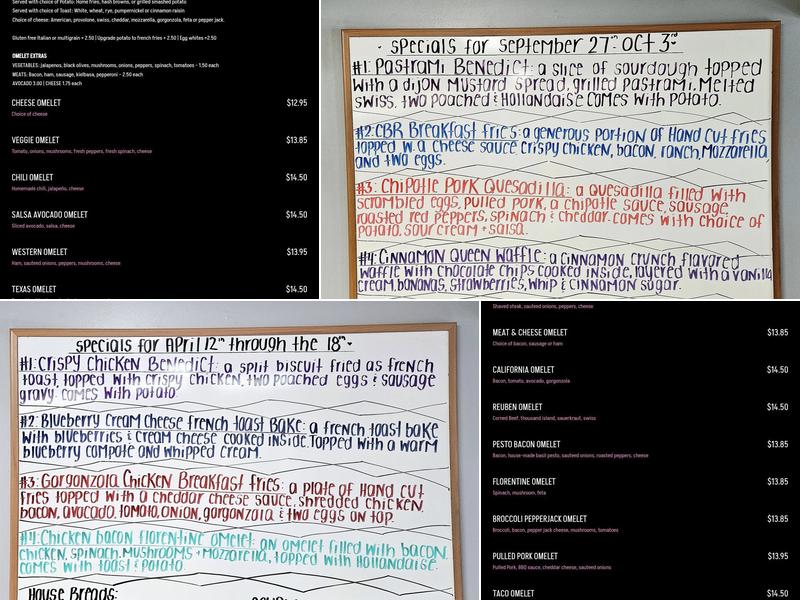 Served with choice of Potato: Home fries, hash browns, or grilled smashed potato
Served with choice of Toast: White, wheat, rye, pumpernickel or cinnamon raisin
Choice of cheese: American, provolone, swiss, cheddar, mozzarella, gorgonzola, feta or pepper jack.
Gluten free Italian or multigrain + 2.50 | Upgrade potato to french fries + 2.50 | Egg whites +2.50
OMELET EXTRAS
VEGETABLES: jalapenos, black olives, mushrooms, onions, peppers, spinach, tomatoes - 1.50 each
MEATS: Bacon, ham, sausage, kielbasa, pepperoni - 2.50 each
AVOCADO 3.00 | CHEESE 1.75 each
CHEESE OMELET $12.95
Choice of cheese
VEGGIE OMELET $13.85
Tomato, onions, mushrooms, fresh peppers, fresh spinach, cheese
CHILI OMELET $14.50
Homemade chili, jalapeño, cheese
SALSA AVOCADO OMELET $14.50
Sliced avocado, salsa, cheese
WESTERN OMELET $13.95
Ham, sauteed onions, peppers, mushrooms, cheese
TEXAS OMELET $14.50
specials for september 27th - oct 3rd
#1: Pastrami Benedict: a slice of sourdough topped
with a dijon mustard spread, grilled pastrami, melted
swiss, two poached & Hollandaise comes with potato.
#2: CBR Breakfast fries: a generous portion of Hand cut fries
topped w. a cheese sauce crispy chicken, bacon, ranch, Mozzarella,
and two eggs.
#3: Chipotle Pork Quesadilla: a quesadilla filled with
scrambled eggs, pulled pork, a chipotle sauce, sausage,
roasted red peppers, spinach & cheddar. comes with choice of
potato, sour cream + salsa.
#4: Cinnamon Queen Waffle: a cinnamon crunch flavored
waffle with chocolate chips cooked inside, layered with a vanilla
cream, bananas, strawberries, whip & cinnamon sugar.
specials for April 12th through the 18th
#1: Crispy Chicken Benedict: a split biscuit fried as french
toast, topped with crispy chicken, two poached eggs & sausage
gravy. comes with potato.
#2: Blueberry Cream Cheese french toast Bake: a french toast bake
with blueberries & cream cheese cooked inside. Topped with a warm
blueberry compote and whipped cream.
#3: Gorgonzola Chicken Breakfast fries: a plate of Hand cut
fries topped with a cheddar cheese sauce, shredded chicken,
bacon, avocado, tomato, onion, gorgonzola & two eggs on top.
#4: Chicken bacon florentine omelet: an omelet filled with bacon,
chicken, spinach, mushrooms + mozzarella, topped with Hollandaise.
comes with toast & potato.
House Breads:
Shaved steak, sauteed onions, peppers, cheese
MEAT & CHEESE OMELET $13.85
Choice of bacon, sausage or ham
CALIFORNIA OMELET $14.50
Bacon, tomato, avocado, gorgonzola
REUBEN OMELET $14.50
Corned Beef, thousand island, sauerkraut, swiss
PESTO BACON OMELET $13.85
Bacon, house-made basil pesto, sauteed onions, roasted peppers, cheese
FLORENTINE OMELET $13.85
Spinach, mushroom, feta
BROCCOLI PEPPERJACK OMELET $13.85
Broccoli, bacon, pepper jack cheese, mushrooms, tomatoes
PULLED PORK OMELET $13.95
Pulled Pork, BBQ sauce, cheddar cheese, sauteed onions
TACO OMELET $14.50